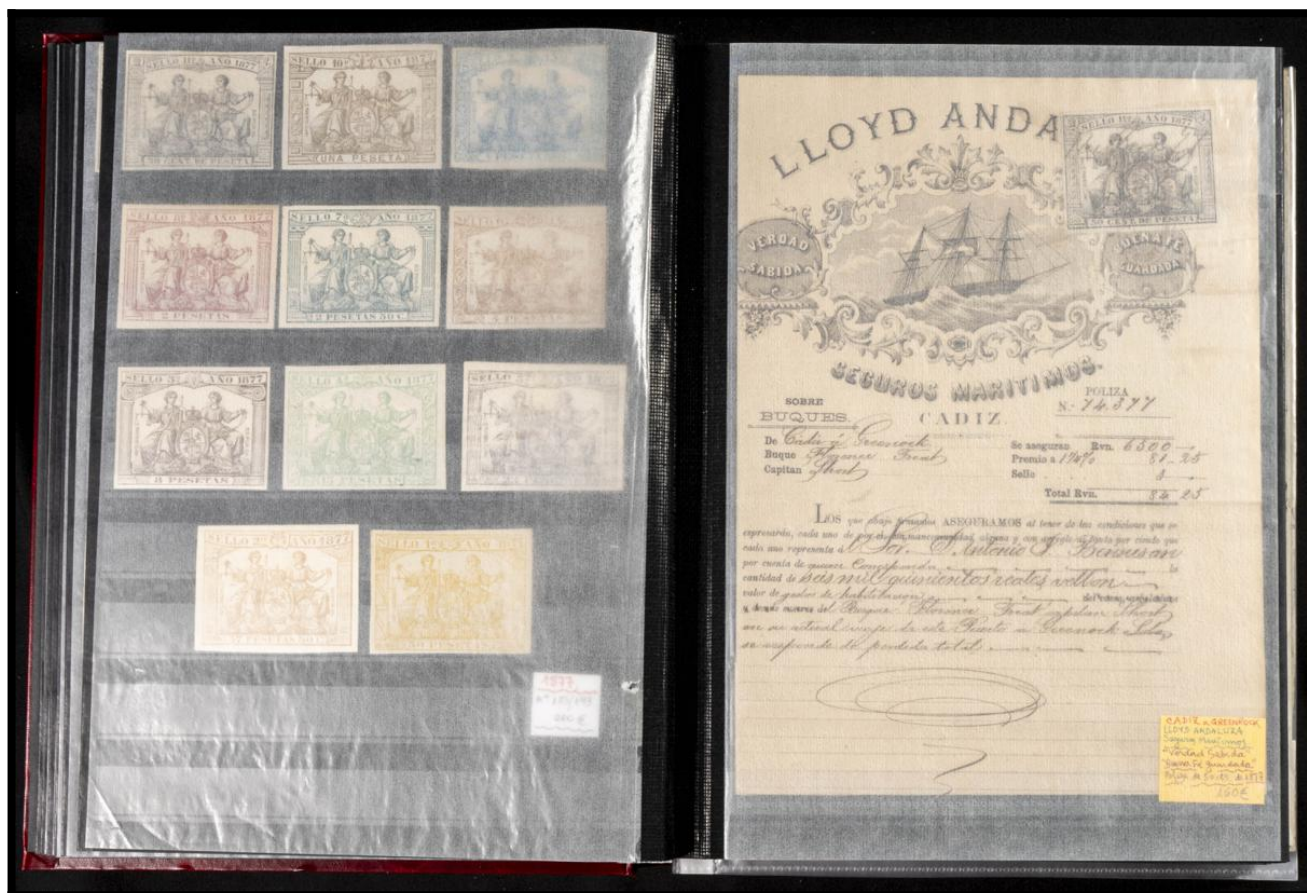 SELLO 11º AÑO 1877
50 CENT. DE PESETA
SELLO 10º AÑO 1877
UNA PESETA
SELLO 8º AÑO 1877
2 PESETAS
SELLO 7º AÑO 1877
2 PESETAS 50 C.
SELLO 5º AÑO 1877
8 PESETAS
SELLO AÑO 1877
SELLO
AÑO 1877
1877
LLOYD ANDA
SELLO 11º AÑO 1877
50 CENT. DE PESETA
VERDAD
SABIDA
BUENA FÉ
GUARDADA
SEGUROS MARITIMOS.
SOBRE
BUQUES.
CADIZ.
POLIZA
N.º 14.377
De Cadiz á Greenock
Buque Florence Trent
Capitan Short
Se aseguran Rvn. 6500
Premio a 1¼% 81-25
Sello 3
Total Rvn. 84 25
LOS que abajo firmados ASEGURAMOS al tenor de las condiciones que se
expresarán, cada uno de por sí, sin mancomunidad alguna y con arreglo al tanto por ciento que
cada uno representa á Sor. D. Antonio J. Bensusan
por cuenta de quienes Corresponda la
cantidad de seis mil quinientos reales vellon
valor de gastos de habilitacion
del Buque Florence Trent capitan Short
en su actual viaje de este Puerto á Greenock
se responde de perdida total
CADIZ a GREENOCK
LLOYD ANDALUZA
Seguros Maritimos
"Verdad Sabida"
"Buena Fé guardada"
de 1877
150€